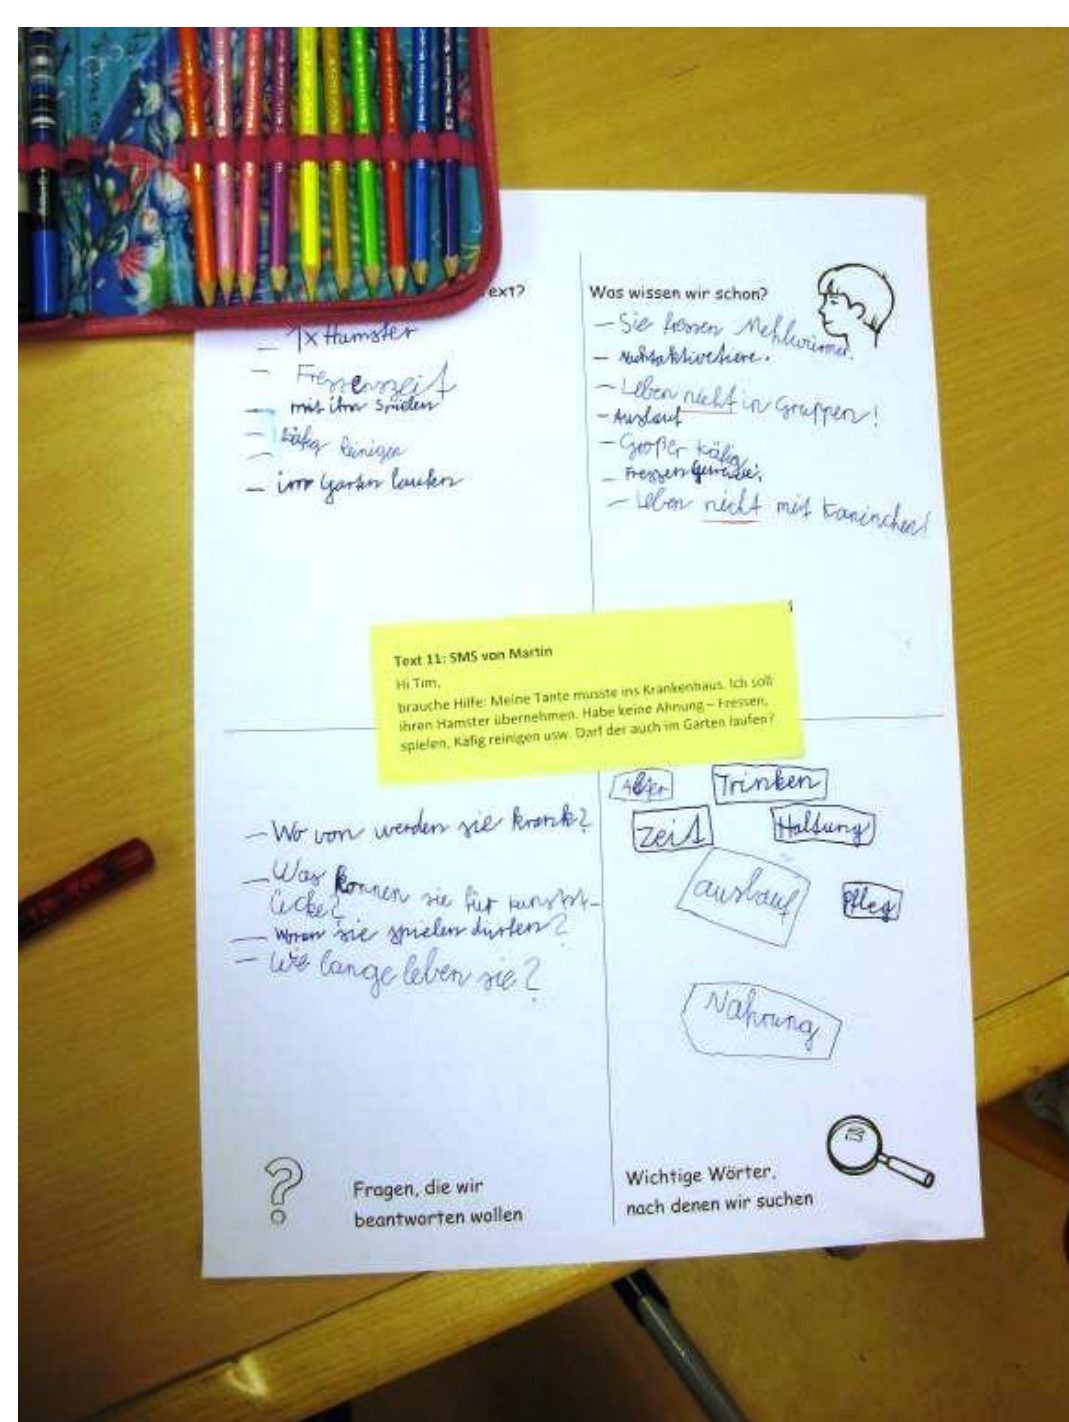 ext?
1x Hamster
Fressenszeit
mit ihm Spielen
Käfig reinigen
im Garten laufen
Was wissen wir schon?
– Sie fressen Mehlwürmer.
– Nachtaktivetiere.
– Leben nicht in Gruppen!
– Auslauf
– Großer Käfig
– Fressen Gemüse.
– Leben nicht mit Kaninchen!
Text 11: SMS von Martin
Hi Tim,
brauche Hilfe: Meine Tante musste ins Krankenhaus. Ich soll
ihren Hamster übernehmen. Habe keine Ahnung – Fressen,
spielen, Käfig reinigen usw. Darf der auch im Garten laufen?
– Wo von werden sie krank?
– Was können sie für kunstst-
ücke?
– sie spielen dürfen?
– Wie lange leben sie?
Fragen, die wir
beantworten wollen
Alter
Trinken
Zeit
Haltung
auslauf
Pfleg
Nahrung
Wichtige Wörter,
nach denen wir suchen